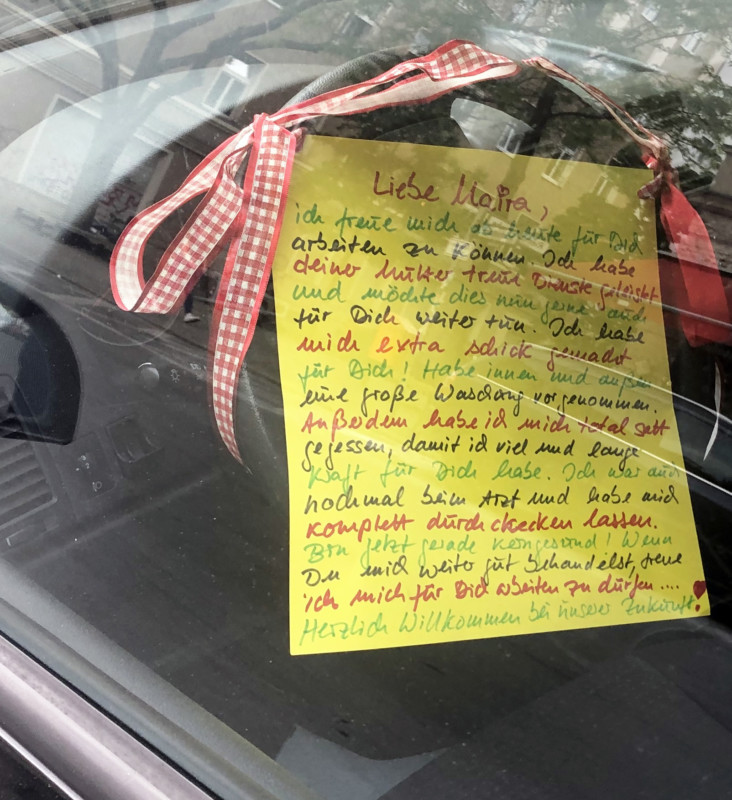 Liebe Maira,
ich freue mich ab heute für Dich
arbeiten zu können. Ich habe
deiner Mutter treue Dienste geleistet
und möchte dies nun gerne auch
für Dich weiter tun. Ich habe
mich extra schick gemacht
für Dich! Habe innen und außen
eine große Waschung vorgenommen.
Außerdem habe ich mich total satt
gegessen, damit ich viel und lange
Kraft für Dich habe. Ich war auch
nochmal beim Arzt und habe mich
komplett durchchecken lassen.
Bin jetzt gerade kerngesund! Wenn
Du mich weiter gut behandelst, freue
ich mich für Dich arbeiten zu dürfen....
Herzlich Willkommen bei unserer Zukunft!